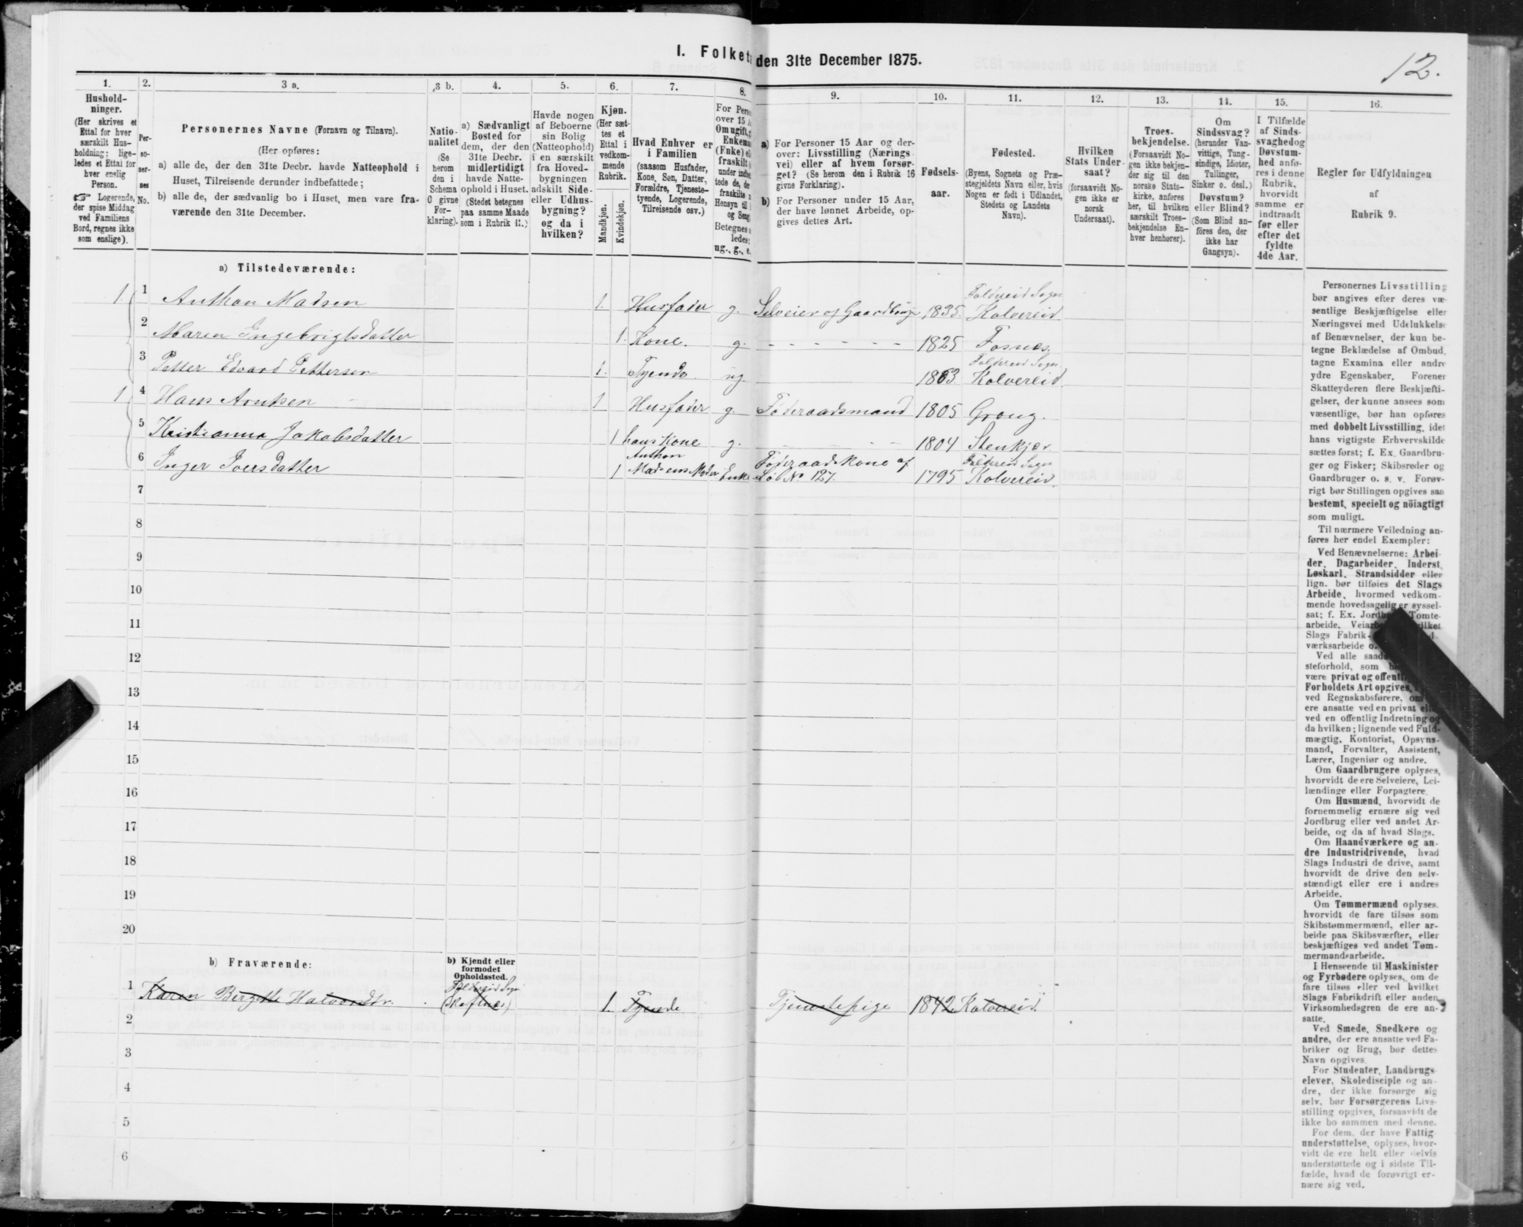 I. Folket
den 31te December 1875.
12.
1.
Hushold-
ninger.
(Her skrives et
Ettal for hver
særskilt Hus-
holdning; lige-
ledes et Ettal for
hver enslig
Person.
☞ Logerende,
der spise Middag
ved Familiens
Bord, regnes ikke
som enslige).
2.
Per-
so-
ner-
nes
No.
3 a.
Personernes Navne (Fornavn og Tilnavn).
(Her opføres:
a) alle de, der den 31te Decbr. havde Natteophold i
Huset, Tilreisende derunder indbefattede;
b) alle de, der sædvanlig bo i Huset, men vare fra-
værende den 31te December.
3 b.
Natio-
nalitet
(Se
herom
den i
Schema
O givne
For-
klaring).
4.
a) Sædvanligt
Bosted for
dem, der den
31te Decbr.
midlertidigt
havde Natte-
ophold i Huset.
(Stedet betegnes
paa samme Maade
som i Rubrik 11.)
5.
Havde nogen
af Beboerne
sin Bolig
(Natteophold)
i en særskilt
fra Hoved-
bygningen
adskilt Side-
eller Udhus-
bygning?
og da i
hvilken?
6.
Kjøn.
(Her sæt-
tes et
Ettal i
vedkom-
mende
Rubrik.
Mandkjøn.
Kvindekjøn.
7.
Hvad Enhver er
i Familien
(saasom Husfader,
Kone, Søn, Datter,
Forældre, Tjeneste-
tyende, Logerende,
Tilreisende osv.)
8.
For Pers
over 15 A
Om ugift,
Enkema
(Enke) el
fraskilt
9.
a) For Personer 15 Aar og der-
over: Livsstilling (Nærings-
vei) eller af hvem forsør-
get? (Se herom den i Rubrik 16
givne Forklaring).
b) For Personer under 15 Aar,
der have lønnet Arbeide, op-
gives dettes Art.
10.
Fødsels-
aar.
11.
Fødested.
(Byens, Sognets og Præ-
stegjeldets Navn eller, hvis
Nogen er født i Udlandet,
Stedets og Landets
Navn).
12.
Hvilken
Stats Under-
saat?
(forsaavidt No-
gen ikke er
norsk
Undersaat).
13.
Troes-
bekjendelse.
(Forsaavidt No-
gen ikke bekjen-
der sig til den
norske Stats-
kirke, anføres
her, til hvilken
særskilt Troes-
bekjendelse En-
hver henhører).
14.
Om
Sindssvag?
(herunder Van-
vittige, Tung-
sindige, Idioter,
Tullinger,
Sinker o. desl.)
Døvstum?
eller Blind?
(Som Blind an-
føres den, der
ikke har
Gangsyn).
15.
I Tilfælde
af Sinds-
svaghed og
Døvstum-
hed anfø-
res i denne
Rubrik,
hvorvidt
samme er
indtraadt
før eller
efter det
fyldte
4de Aar.
16.
Regler for Udfyldningen
af
Rubrik 9.
a) Tilstedeværende:
1 1 Anthon Madsen 1. Husfader g. Selveier og Gaardbruger 1835. Foldereid Sogn Kolvereid
2 Maren Ingebrigtsdatter 1. Kone. g. - - - - - - 1825 Fosnes.
3 Petter Edvard Pettersen 1. Tyende ug. 1863 Foldereid Sogn Kolvereid
1 4 Hans Arntsen 1 Husfader g. Føderaadsmand 1805 Grong.
5 Kristianna Jakobsdatter 1 hans Kone g. - - - - - 1804 Stenkjær
6 Inger Iversdatter 1 Anthon Madsens Moder Enke Føderaadskone af Løb No 127. 1795 Foldereid Sogn Kolvereid.
7
8
9
10
11
12
13
14
15
16
17
18
19
20
b) Fraværende:
b) Kjendt eller
formodet
Opholdssted.
1 Karen Bergitte Halvordtr. 1. Tyende Tjenestepige 1842 Kolvereid
2
3
4
5
6
Personernes Livsstilling
bør angives efter deres væ-
sentlige Beskjæftigelse eller
Næringsvei med Udelukkelse
af Benævnelser, der kun be-
tegne Beklædelse af Ombud,
tagne Examina eller andre
ydre Egenskaber. Forener
Skatteyderen flere Beskjæfti-
gelser, der kunne ansees som
væsentlige, bør han opføres
med dobbelt Livsstilling, idet
hans vigtigste Erhvervskilde
sættes først; f. Ex. Gaardbru-
ger og Fisker; Skibsreder og
Gaardbruger o. s. v. Forøv-
rigt bør Stillingen opgives saa
bestemt, specielt og nöiagtigt
som muligt.
Til nærmere Veiledning an-
føres her endel Exempler:
Ved Benævnelserne: Arbei-
der, Dagarbeider, Inderst,
Løskarl, Strandsidder eller
lign. bør tilføies det Slags
Arbeide, hvormed vedkom-
mende hovedsagelig er syssel-
sat; f. Ex.
Slags Fabrik-
værksarbeide
Ved alle
steforhold, som
være privat og
Forholdets Art opgives,
ved Regnskabsførere,
ere ansatte ved en privat
ved en offentlig Indretning og
da hvilken; lignende ved Fuld-
mægtig, Kontorist, Opsyns-
mand, Forvalter, Assistent,
Lærer, Ingeniør og andre.
Om Gaardbrugere oplyses,
hvorvidt de ere Selveiere, Lei-
lændinge eller Forpagtere.
Om Husmænd, hvorvidt de
fornemmelig ernære sig ved
Jordbrug eller ved andet Ar-
beide, og da af hvad Slags.
Om Haandværkere og an-
dre Industridrivende, hvad
Slags Industri de drive, samt
hvorvidt de drive den selv-
stændigt eller ere i andres
Arbeide.
Om Tømmermænd oplyses,
hvorvidt de fare tilsøs som
Skibstømmermænd, eller ar-
beide paa Skibsværfter, eller
beskjæftiges ved andet Tøm-
mermandsarbeide.
I Henseende til Maskinister
og Fyrbødere oplyses, om de
fare tilsøs eller ved hvilket
Slags Fabrikdrift eller anden
Virksomhedsgren de ere an-
satte.
Ved Smede, Snedkere og
andre, der ere ansatte ved Fa-
briker og Brug, bør dettes
Navn opgives.
For Studenter, Landbrugs-
elever, Skoledisciple og an-
dre, der ikke forsørge sig
selv, bør Forsørgerens Livs-
stilling opgives, forsaavidt de
ikke bo sammen med denne.
For dem, der have Fattig-
understøttelse, oplyses, hvor-
vidt de ere helt eller delvis
understøttede og i sidste Til-
fælde, hvad de forøvrigt er-
nære sig ved.